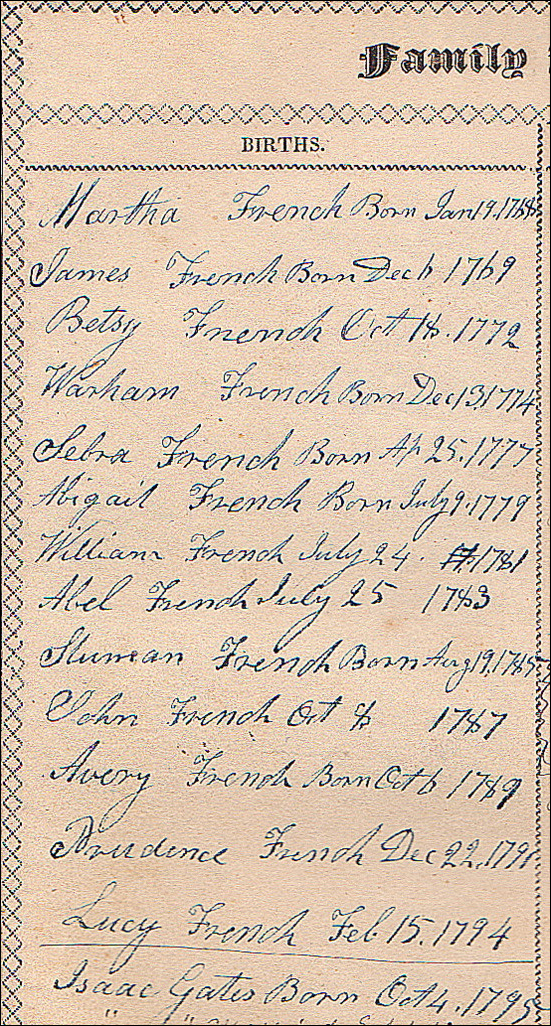 Family
BIRTHS.
Martha French Born Jan 19. 1768
James French Born Dec 6 1769
Betsy French Oct 18. 1772
Warham French Born Dec 13, 1774
Sebra French Born Ap 25. 1777
Abigail French Born July 9. 1779
William French July 24. 1781
Abel French July 25 1783
Sluman French Born Aug 19, 1785
John French Oct 8 1787
Avery French Born Oct 6 1789
Prudence French Dec 22, 1791
Lucy French Feb 15. 1794
Isaac Gates Born Oct 4. 1795